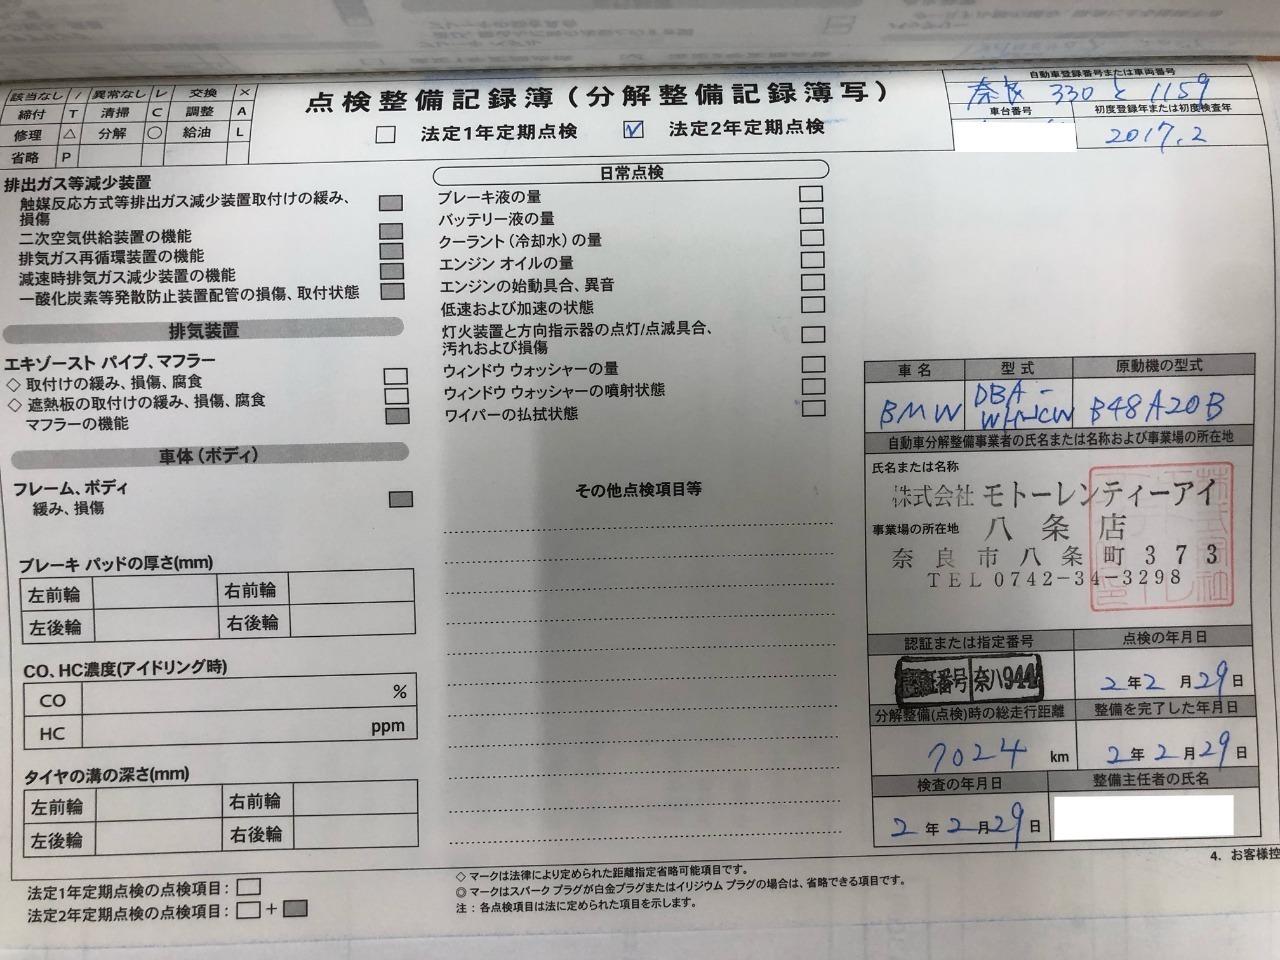 該当なし / 異常なし レ 交換 ×
締付 T 清掃 C 調整 A
修理 △ 分解 ○ 給油 L
省略 P
点検整備記録簿(分解整備記録簿写)
□ 法定1年定期点検 ☑ 法定2年定期点検
自動車登録番号または車両番号
奈良 330 と 1159
車台番号 初度登録年または初度検査年
2017.2
排出ガス等減少装置
触媒反応方式等排出ガス減少装置取付けの緩み、
損傷
二次空気供給装置の機能
排気ガス再循環装置の機能
減速時排気ガス減少装置の機能
一酸化炭素等発散防止装置配管の損傷、取付状態
排気装置
エキゾースト パイプ、マフラー
◇ 取付けの緩み、損傷、腐食
◇ 遮熱板の取付けの緩み、損傷、腐食
マフラーの機能
車体(ボディ)
フレーム、ボディ
緩み、損傷
ブレーキ パッドの厚さ(mm)
左前輪 右前輪
左後輪 右後輪
CO、HC濃度(アイドリング時)
CO %
HC ppm
タイヤの溝の深さ(mm)
左前輪 右前輪
左後輪 右後輪
法定1年定期点検の点検項目: □
法定2年定期点検の点検項目: □ + ■
日常点検
ブレーキ液の量
バッテリー液の量
クーラント(冷却水)の量
エンジン オイルの量
エンジンの始動具合、異音
低速および加速の状態
灯火装置と方向指示器の点灯/点滅具合、
汚れおよび損傷
ウィンドウ ウォッシャーの量
ウィンドウ ウォッシャーの噴射状態
ワイパーの払拭状態
その他点検項目等
◇ マークは法律により定められた距離指定省略可能項目です。
◎ マークはスパーク プラグが白金プラグまたはイリジウム プラグの場合は、省略できる項目です。
注: 各点検項目は法に定められた項目を示します。
車名 型式 原動機の型式
BMW DBA- B48A20B
自動車分解整備事業者の氏名または名称および事業場の所在地
氏名または名称
株式会社 モトーレンティーアイ
事業場の所在地 八条店
奈良市八条町373
TEL 0742-34-3298
認証または指定番号 点検の年月日
認証番号 奈八944 2年2月29日
分解整備(点検)時の総走行距離 整備を完了した年月日
7024 km 2年2月29日
検査の年月日 整備主任者の氏名
2年2月29日
4. お客様控